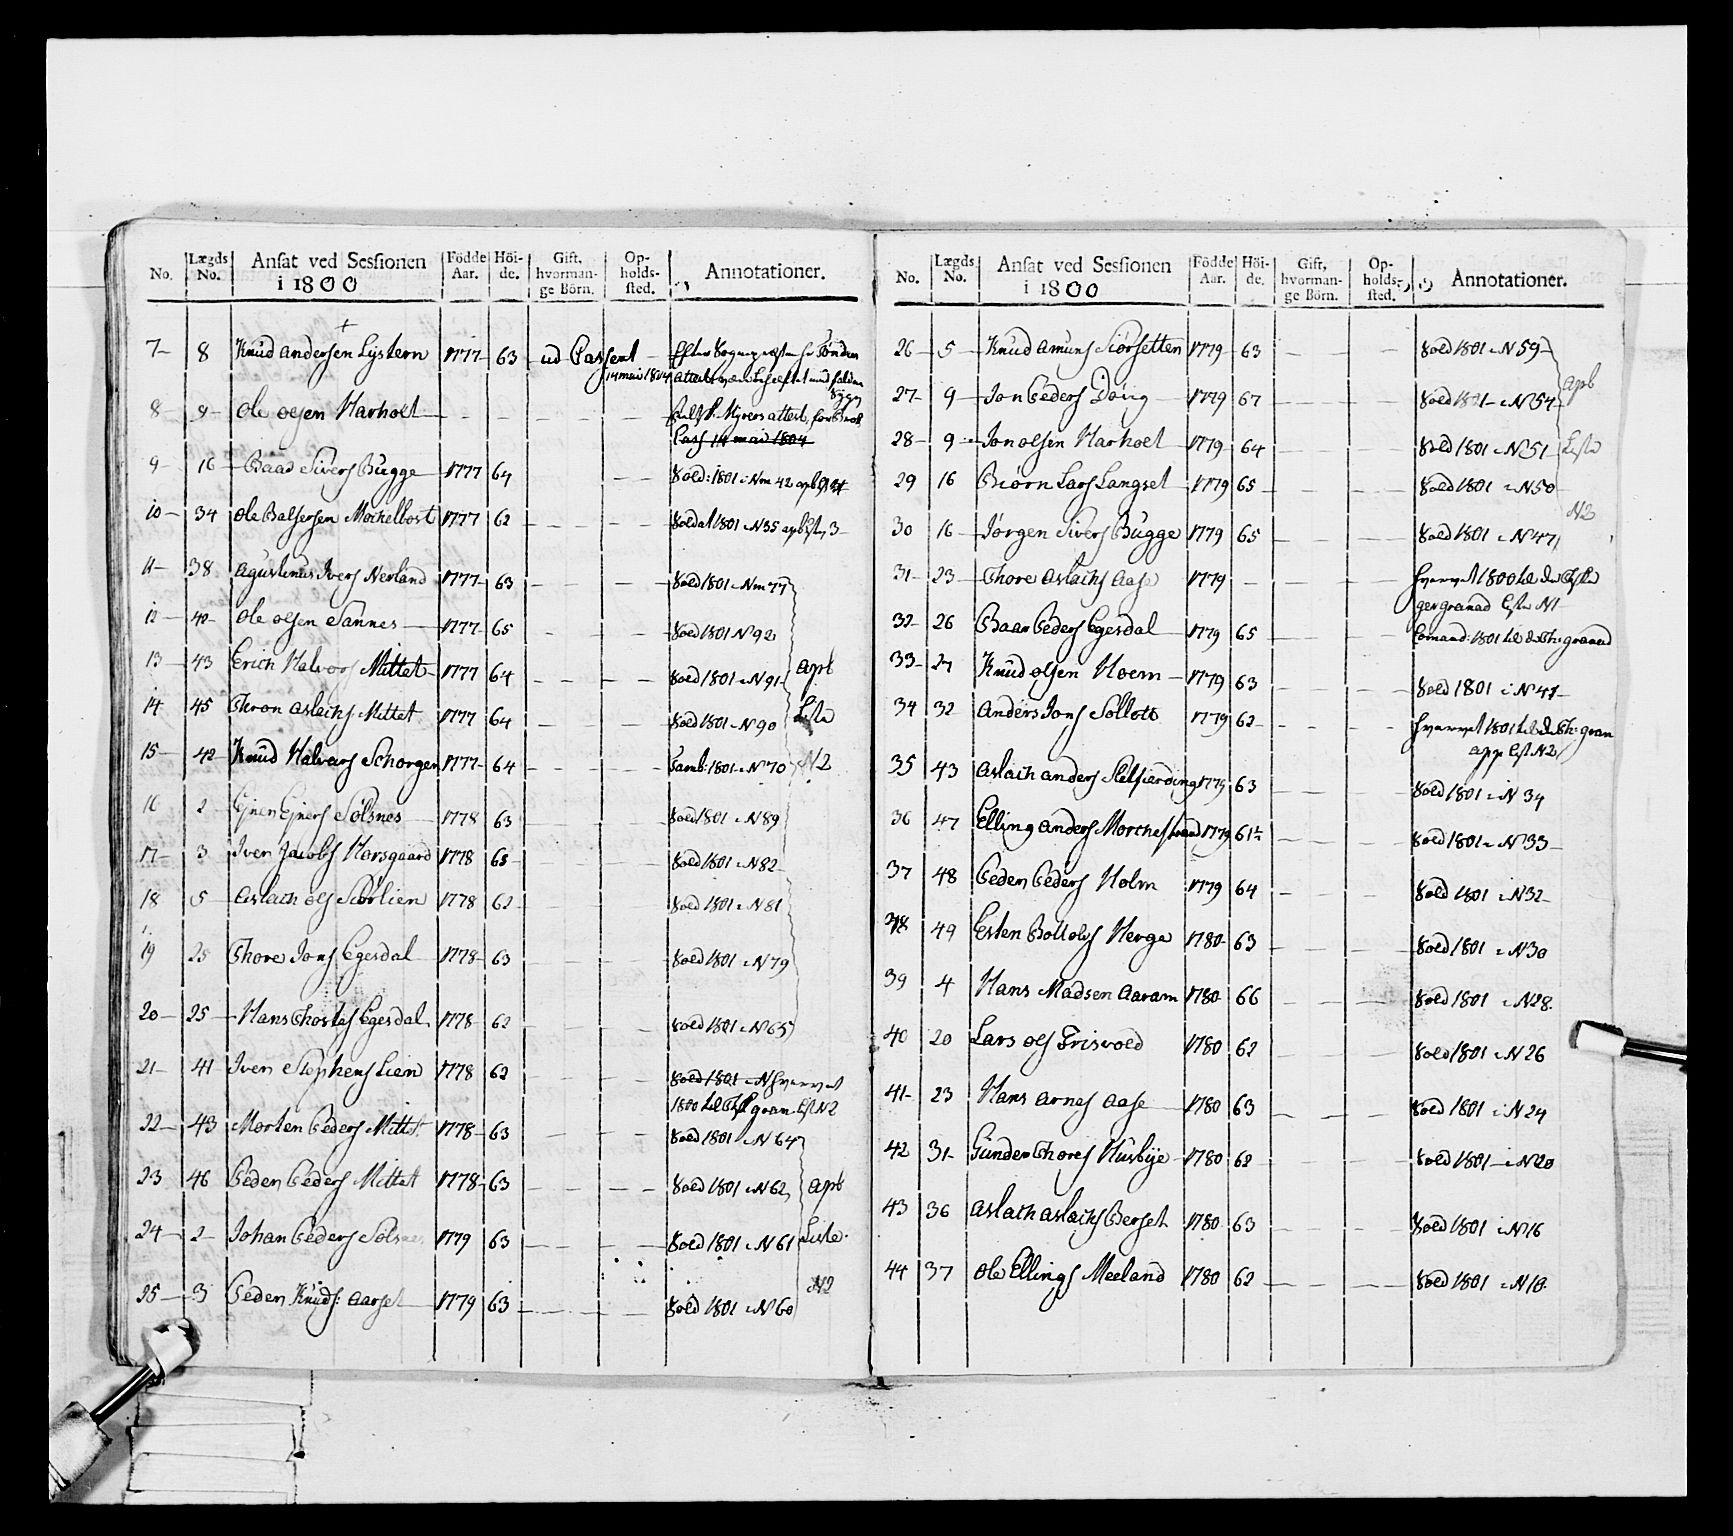 No. Lægds No. Ansat ved Sessionen i 1800 Födde Aar. Höi-de. Gift, hvorman-ge Börn. Op-holds-sted. Annotationer.
7 8 Knud Andersen Lystern 1777 63 ud Cassert
14 mai 1804
8 9 Ole Olsen Harholt
Cass 14 mai 1804
9 16 Baad Sivers Bugge 1777 64 Sold: 1801 i Nm 42
10 34 Ole Balsersen Mochelbost 1777 62 Soldat 1801 N35
11 38 Agustinus Ivers Nerland 1777 63 Sold 1801 i Nm 77
12 42 Ole Olsen Sannes 1777 65 Sold 1801 N 92
13 43 Erich Halvors Mittet 1777 64 Sold 1801 i N 91 apb
14 45 Thron Aslachs Mittet 1777 64 Sold 1801 i N 90 Liste
15 42 Knud Halvars Schorgen 1777 64 Tamb: 1801 i N 70 N2
16 2 Ejner Ejners Solsnes 1778 63 Sold 1801 i N 89
17 3 Iver Jacobs Horsgaard 1778 68 Sold 1801 i N 82
18 5 Aslach Ols Siørlien 1778 62 Sold 1801 i N 81
19 25 Thore Jons Egesdal 1778 63 Sold 1801 i N 79
20 25 Hans Thostes Egesdal 1778 62 Sold 1801 i N 65
21 41 Iver Stephens Lien 1778 62 Sold 1801 i N hvervet
1800 til gran List N2
22 43 Morten Peders Mittet 1778 63 Sold 1801 i N 64
23 46 Peder Peders Mittet 1778 63 Sold 1801 i N 62 apb
24 2 Johan Peders Solsnes 1779 63 Sold 1801 i N 61 Liste
N2
25 3 Peder Knuds: Aarset 1779 63 Sold 1801 i N 60
No. Lægds No. Ansat ved Sessionen i 1800 Födde Aar. Höi-de. Gift, hvorman-ge Börn. Op-holds-sted. Annotationer.
26 5 Knud Amuns Siørsetten 1779 63 Sold 1801 i N 59
27 9 Jon Peders Döug 1779 67 Sold 1801 i N 54 apb
28 9 Jon Olsen Harholt 1779 64 Sold 1801 i N 51 Liste
29 16 Biørn Lars Langset 1779 65 Sold 1801 i N 50
N2
30 16 Jørgen Sivers Bugge 1779 65 Sold 1801 i N 47
31 23 Thore Aslachs Aase 1779 hvervet 1800 til
ger granad Liste N1
32 26 Baar Peders Egesdal 1779 65 1801 til granad
33 27 Knud Olsen Hoem 1779 63 Sold 1801 i N 41
34 32 Anders Jons Sollott 1779 62 hvervet 1801 til gran
List N2
35 43 Aslach Anders Sletfierding 1779 63 Sold 1801 i N 34
36 47 Elling Anders Morchestrand 1779 61½ Sold 1801 i N 33
37 48 Peder Peders Holm 1779 64 Sold 1801 i N 32
38 49 Esten Bottolvs Herge 1780 63 Sold 1801 i N 30
39 4 Hans Madsen Aaram 1780 66 Sold 1801 i N 28
40 20 Lars Ols Frisvold 1780 62 Sold 1801 i N 26
41 23 Hans Arnes Aase 1780 63 Sold 1801 i N 24
42 31 Gunder Thores Husbye 1780 62 Sold 1801 i N 20
43 36 Aslach Aslachs Berset 1780 63 Sold 1801 i N 16
44 37 Ole Ellings Meeland 1780 62 Sold 1801 i N 10